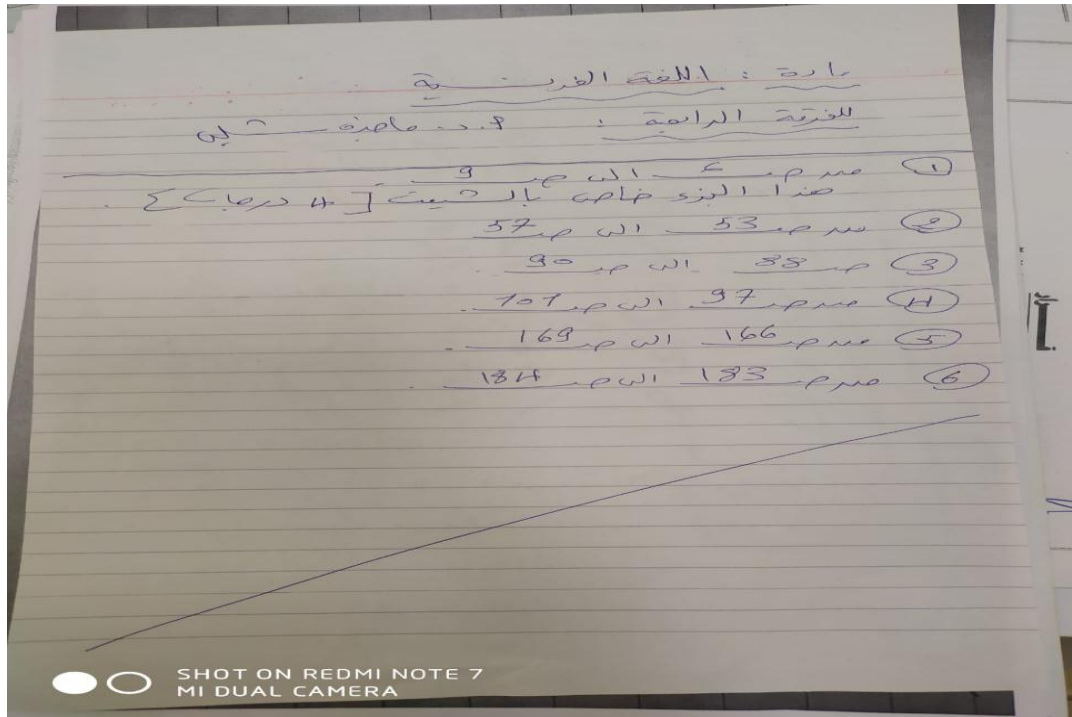 مادة : اللغة الفرنسية
للفرقة الرابعة : أ.د. ماجدة شلبي
① من ص ٤ الى ص 9
هذا الجزء خاص بالشيت [ 4 درجات ]
② من ص 53 الى ص 57
③ ص 88 الى ص 90
④ من ص 97 الى ص 101
⑤ من ص 166 الى ص 169
⑥ من ص 183 الى ص 184
SHOT ON REDMI NOTE 7
MI DUAL CAMERA